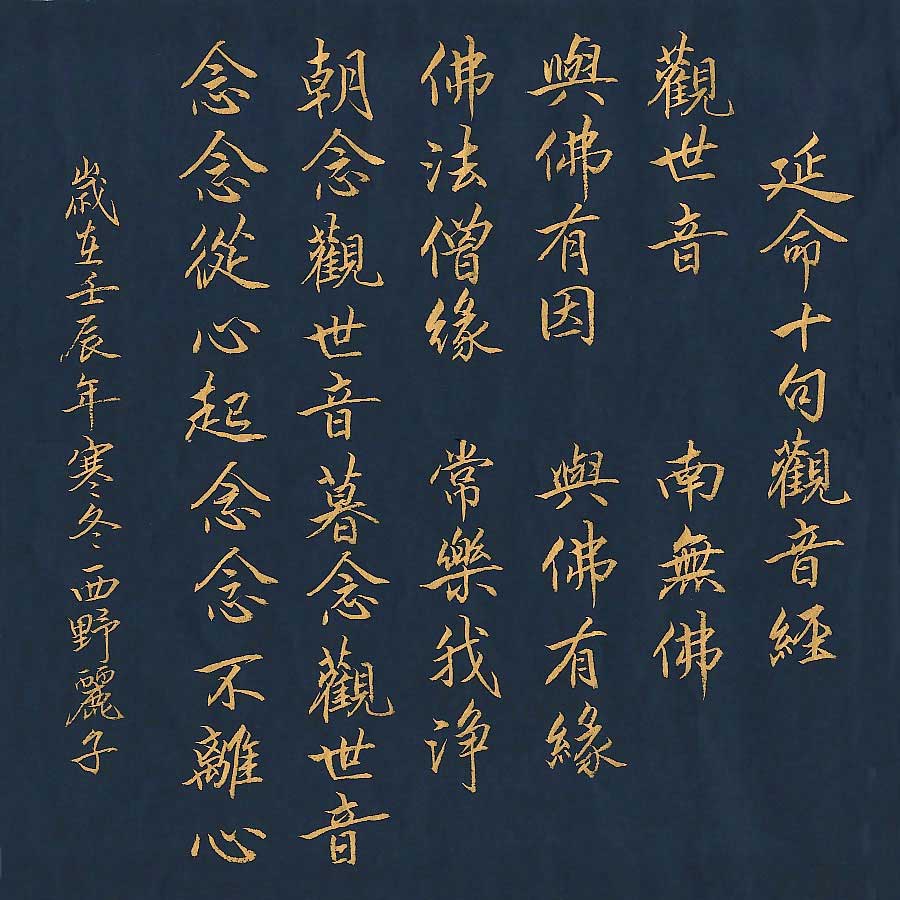 延命十句觀音經
觀世音　南無佛
與佛有因　與佛有緣
佛法僧緣　常樂我浄
朝念觀世音暮念觀世音
念念從心起念念不離心
歳在壬辰年寒冬西野麗子